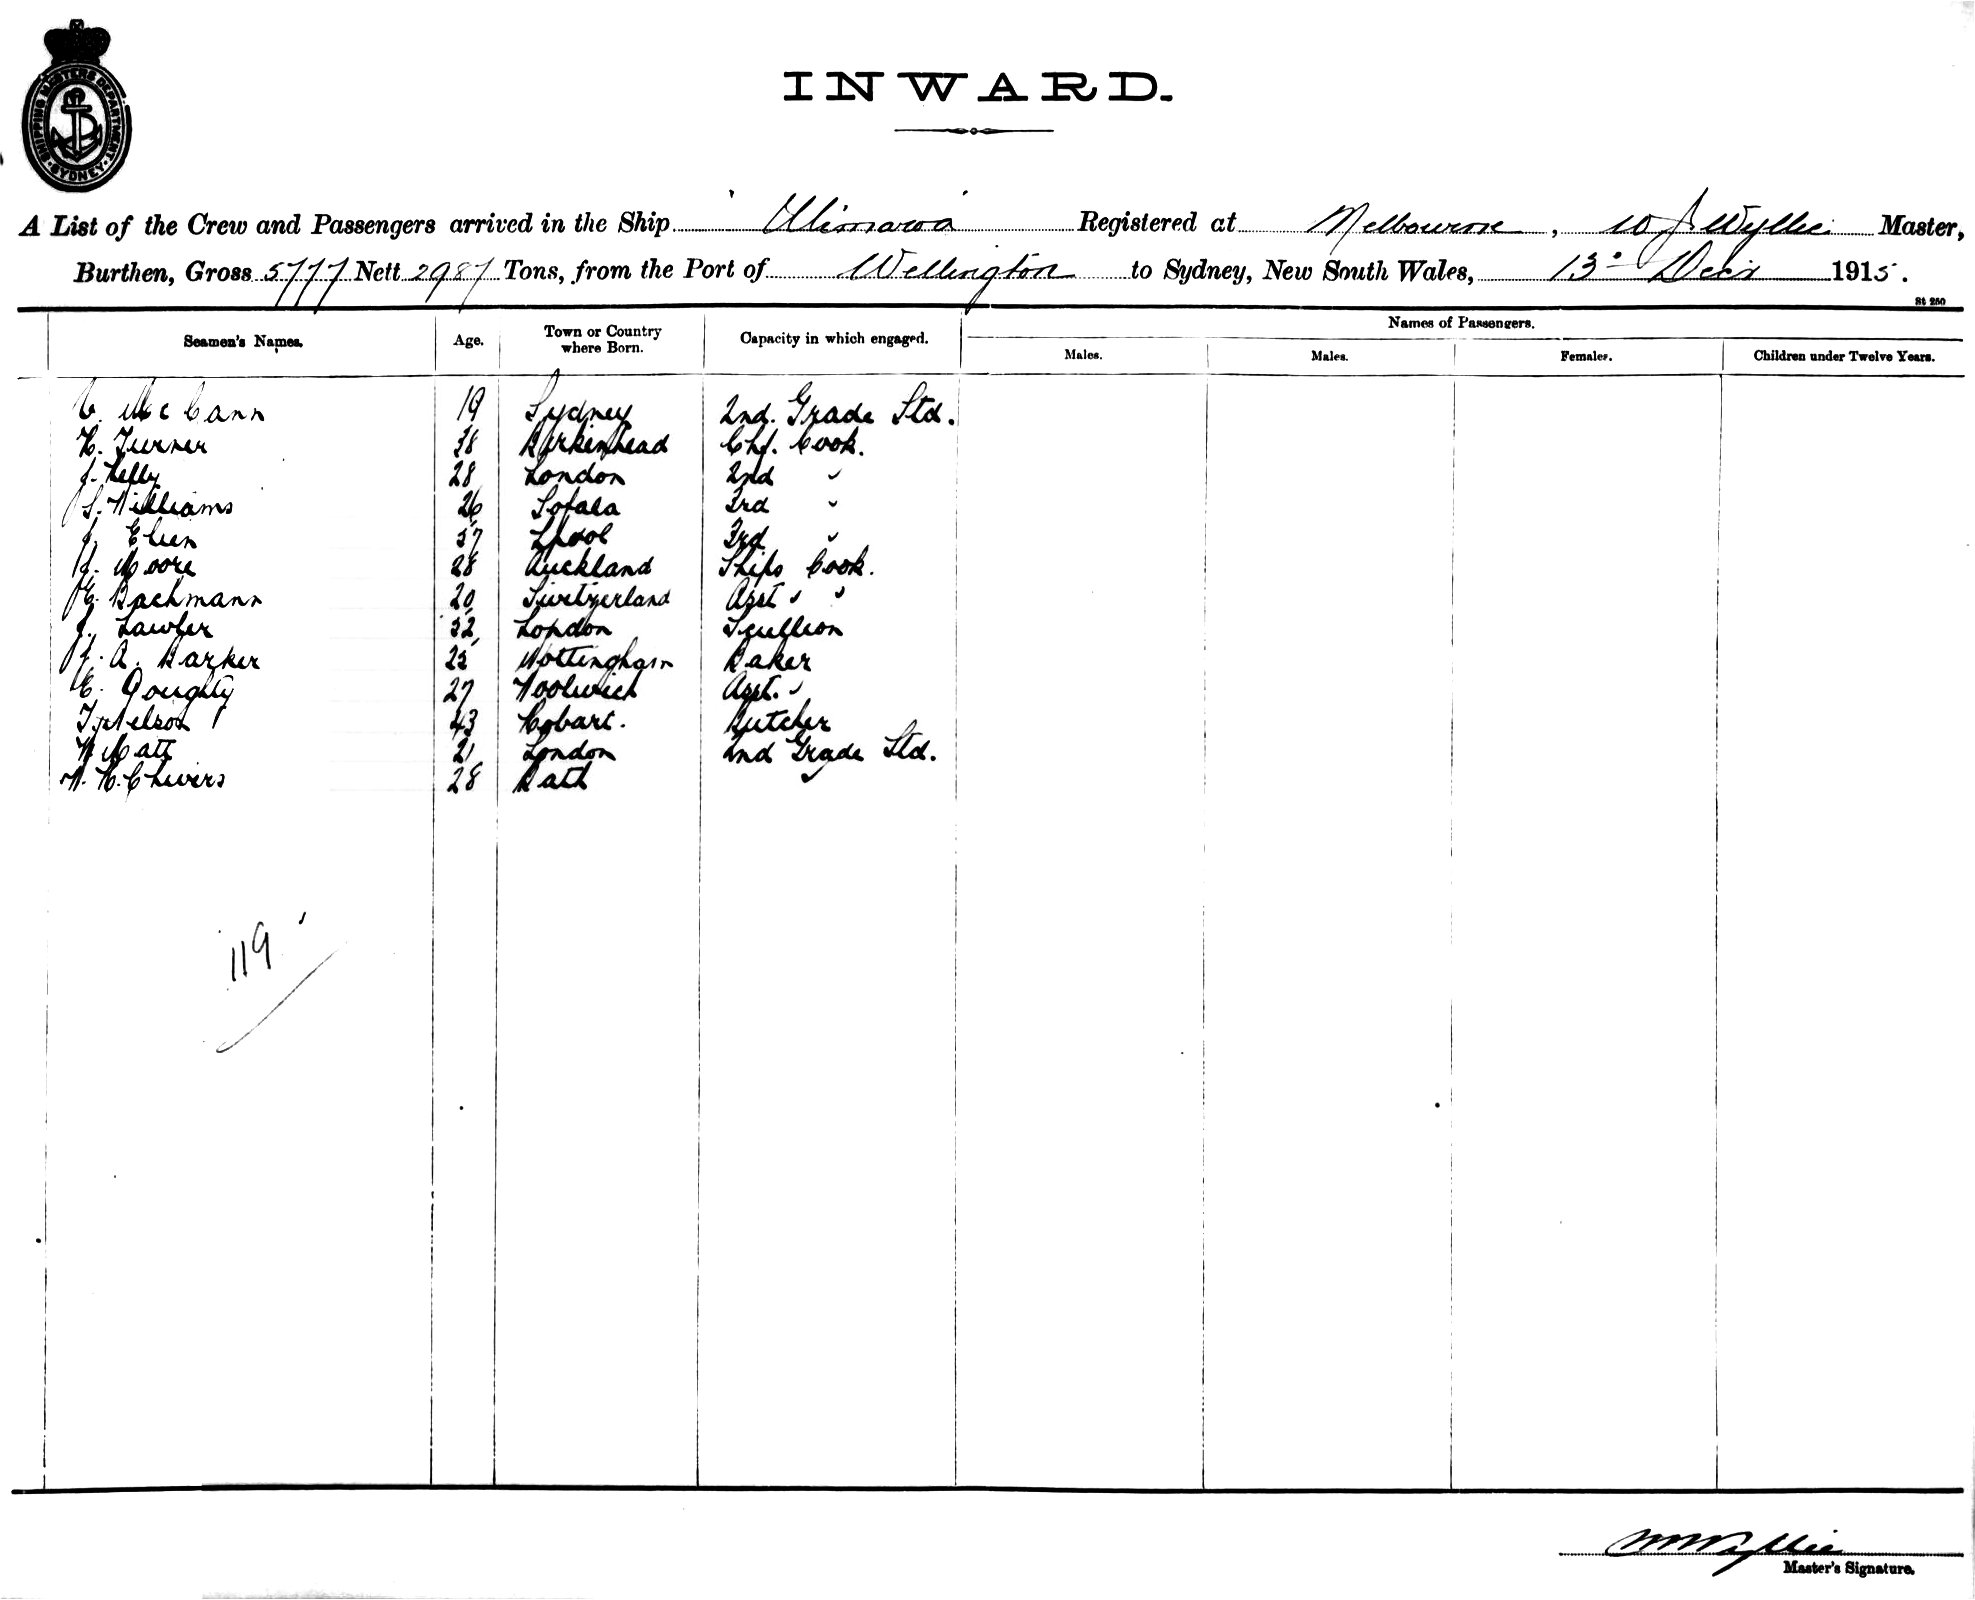 SHIPPING MASTERS DEPARTMENT
SYDNEY
INWARD.
A List of the Crew and Passengers arrived in the Ship "Ulimaroa" Registered at Melbourne, W J Wyllie Master,
Burthen, Gross 5777 Nett 2987 Tons, from the Port of Wellington to Sydney, New South Wales, 13th Decr 1915.
St 250
Seamen's Names. Age. Town or Country where Born. Capacity in which engaged. Names of Passengers.
Males. Males. Females. Children under Twelve Years.
McCann 19 Sydney 2nd. Grade Std.
H. Turner 38 Birkenhead Chf. Cook.
J. Kelly 28 London 2nd "
S. Williams 26 Sofala 3rd "
J. 37 Lpool 3rd "
J. Moore 28 Auckland Ships Cook.
E. Bachmann 20 Switzerland Asst " "
J. Lawler 32 London Scullion
J. A. Barker 25 Nottingham Baker
E. Doughty 27 Woolwich Asst. "
T. Nelson 43 Hobart. Butcher
W Matt 21 London 2nd Grade Std.
W. H. Chivers 28 Bath "
119
W J Wyllie
Master's Signature.